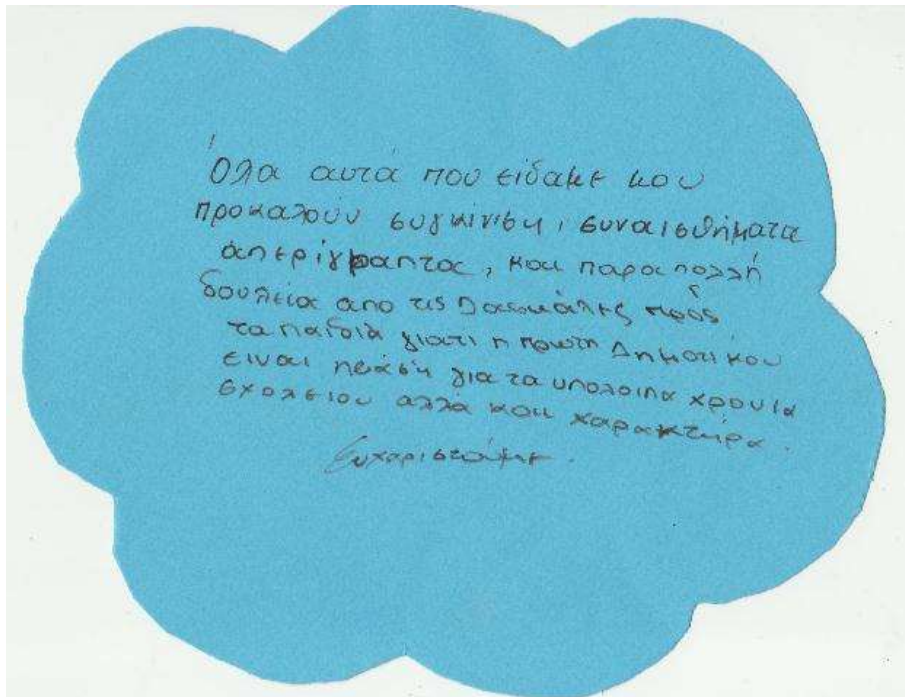 Όλα αυτά που είδαμε μου
προκαλούν συγκίνιση, συναισθήματα
απερίγραπτα, και παρα πολλή
δουλεία απο τις Δασκάλες προς
τα παιδιά γιατι η πρωτη Δημοτικου
ειναι η βάση για τα υπολοιπα χρονια
σχολειου αλλά και χαρακτήρα.
Ευχαριστούμε.